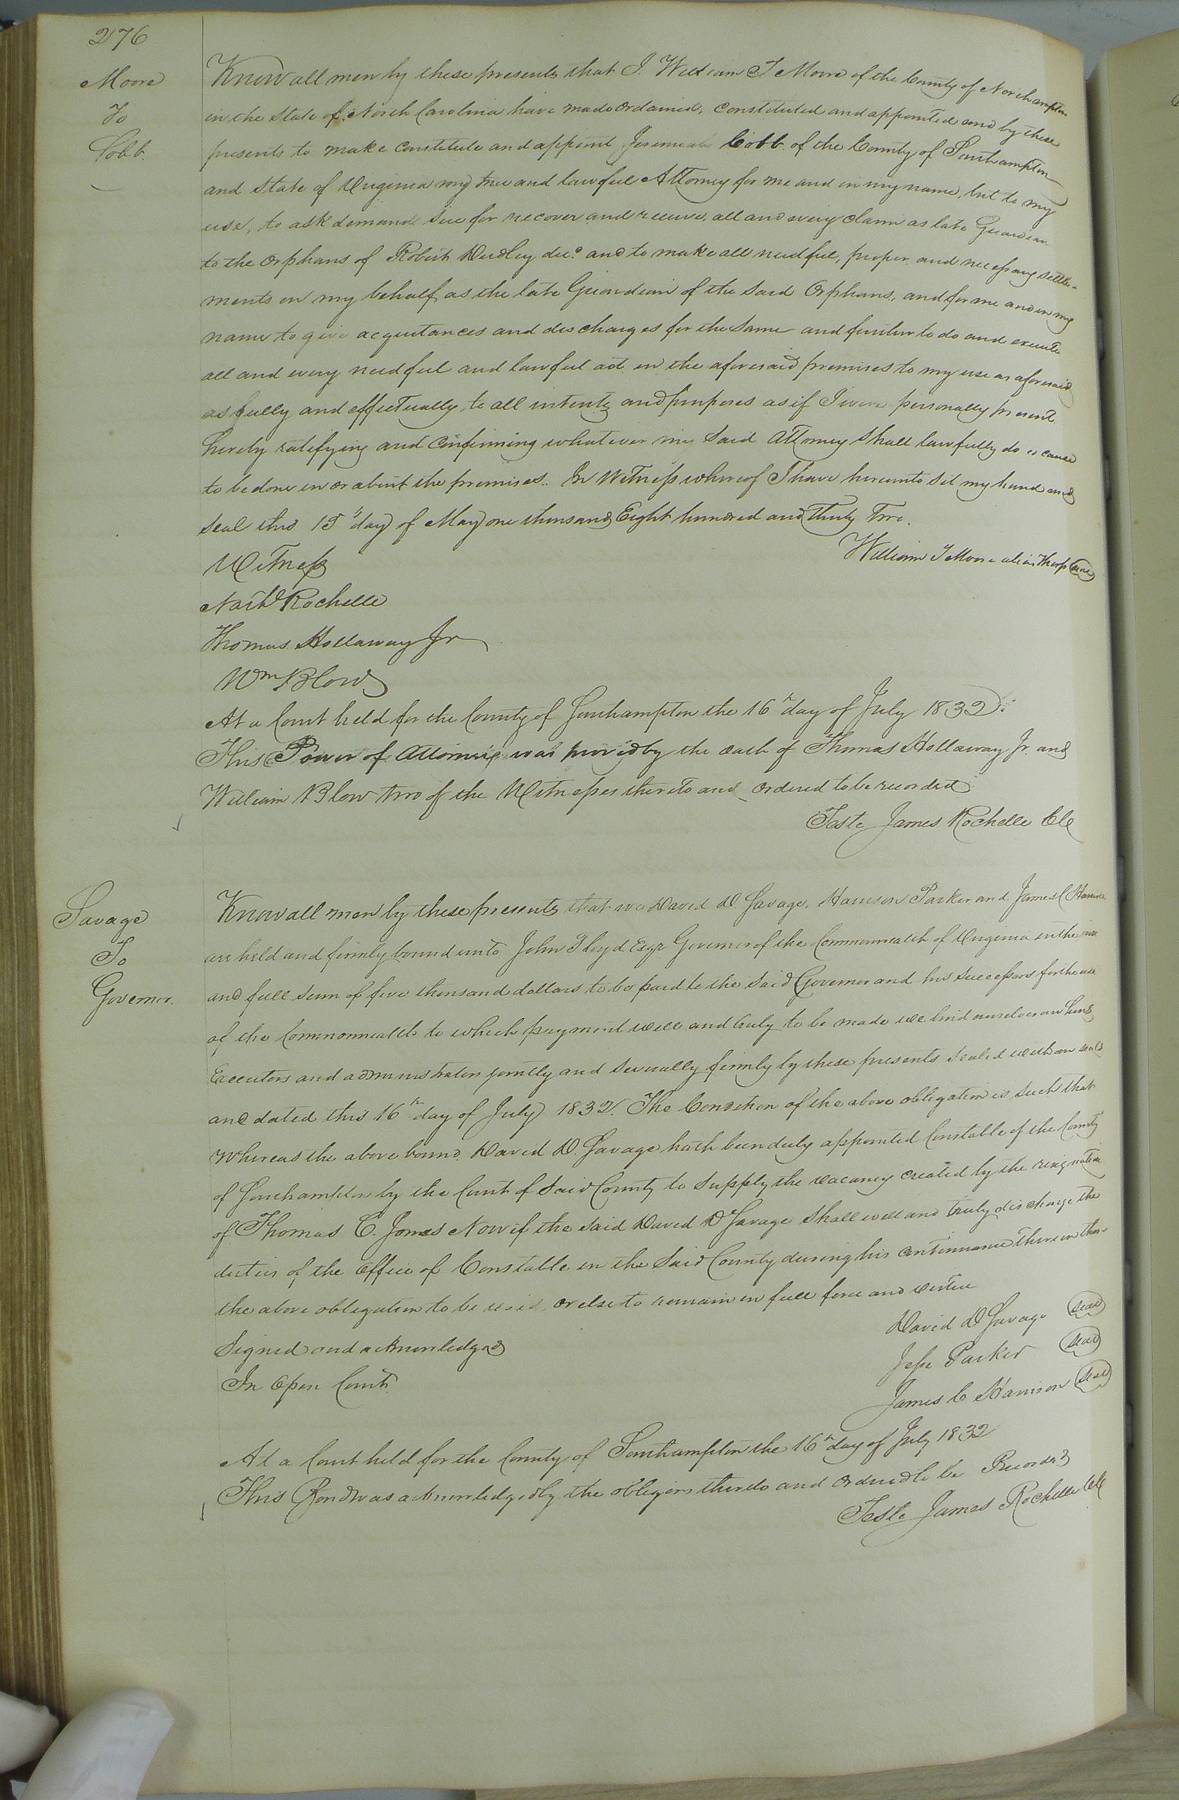 276
Moore
To
Cobb
Know all men by these presents that I William T Moore of the County of Northampton
in the State of North Carolina have made ordained, constituted and appointed and by these
presents to make constitute and appoint Jeremiah Cobb of the County of Southampton
and State of Virginia my true and lawful Attorney for me and in my name, but to my
use, to ask demand sue for recover and receive, all and every claim as late Guardian
to the orphans of Robert Dudley decd and to make all needful, proper and necessary settle-
ments on my behalf as the late Guardian of the said Orphans, and for me and in my
name to give acquitances and discharges for the same and further to do and execute
all and every needful and lawful act in the aforesaid premises to my use as aforesaid
as fully and effectually to all intents and purposes as if I were personally present
hereby ratifying and confirming whatever my said Attorney shall lawfully do or cause
to be done in or about the premises. In Witness whereof I have hereunto set my hand and
seal this 15th day of May one thousand Eight hundred and thirty two.
William T Moore alias Thorp Seal
Witness
Nath Rochelle
Thomas Hollaway Jr
Wm Blow
At a Court held for the County of Southampton the 16th day of July 1832
This Power of Attorney was proved by the oath of Thomas Hollaway Jr. and
William Blow two of the Witnesses thereto and ordered to be recorded
Teste James Rochelle Clk
Savage
To
Governor
Know all men by these presents that we David D Savage, Harrison Parker and James C Harrison
are held and firmly bound unto John Floyd Esqr Governor of the Commonwealth of Virginia in the
and full sum of five thousand dollars to be paid to the said Governor and his successors for the use
of the Commonwealth to which payment well and truly to be made we bind ourselves our heirs
Executors and administrators jointly and severally firmly by these presents sealed with our seals
and dated this 16th day of July 1832. The Condition of the above obligation is such that
whereas the above bound David D. Savage hath been duly appointed Constable of the County
of Southampton by the Court of said County to supply the vacancy created by the resignation
of Thomas C. Jones Now if the said David D Savage shall well and truly discharge the
duties of the office of Constable in the said County during his continuance therein then
the above obligation to be void, or else to remain in full force and virtue
Signed and acknowledged
In Open Court
David D Savage Seal
Jesse Parker Seal
James C Harrison Seal
At a Court held for the County of Southampton the 16th day of July 1832
This Bond was acknowledged by the obligors thereto and ordered to be Recorded
Teste James Rochelle Clk